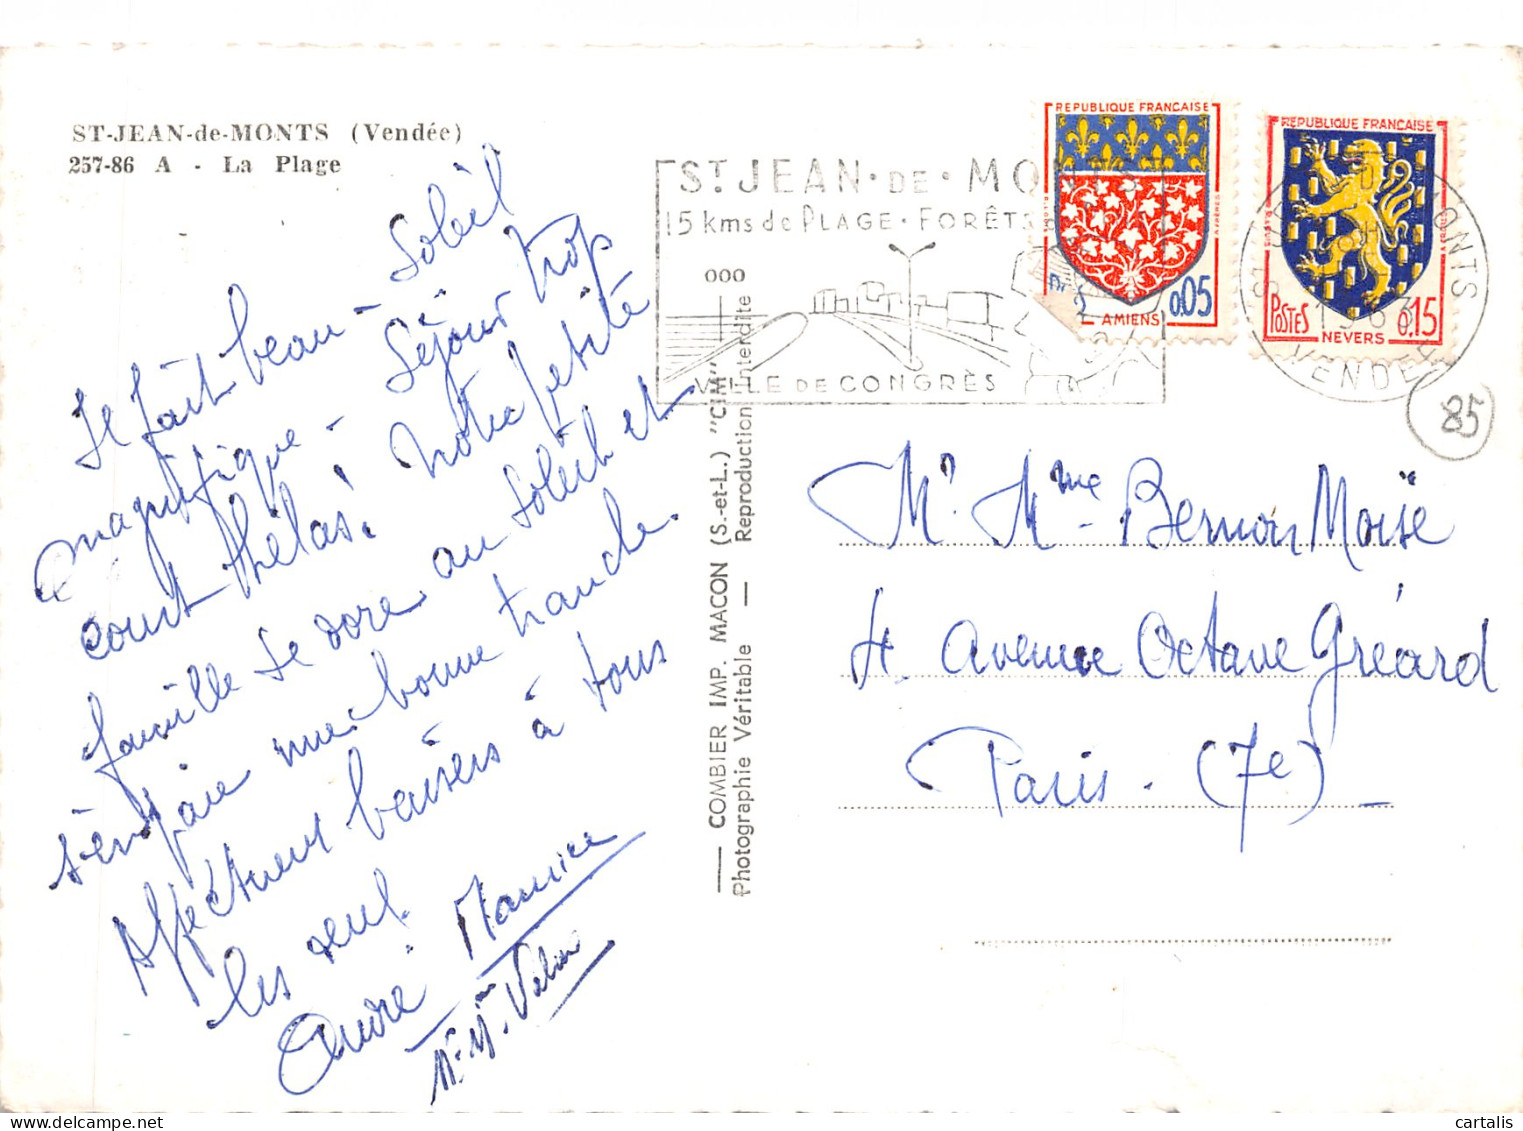 ST-JEAN-de-MONTS (Vendée)
257-86 A - La Plage
Il fait beau - Soleil
magnifique - Séjour trop
court hélas! Notre petite
famille se dore au soleil et
s'en paie une bonne tranche.
Affectueux baisers à tous
les deux.
André Maurice
COMBIER IMP. MACON (S.-et-L.) "CIM"
Photographie Véritable — Reproduction interdite
ST JEAN·DE·MONTS
15 kms de PLAGE·FORÊTS
VILLE DE CONGRÈS
REPUBLIQUE FRANCAISE
AMIENS 0,05
REPUBLIQUE FRANCAISE
POSTES 0,15
NEVERS
1963
VENDEE
85
Mr. Mme Bernon Moïse
4. Avenue Octave Gréard
Paris. (7e)
cartalis